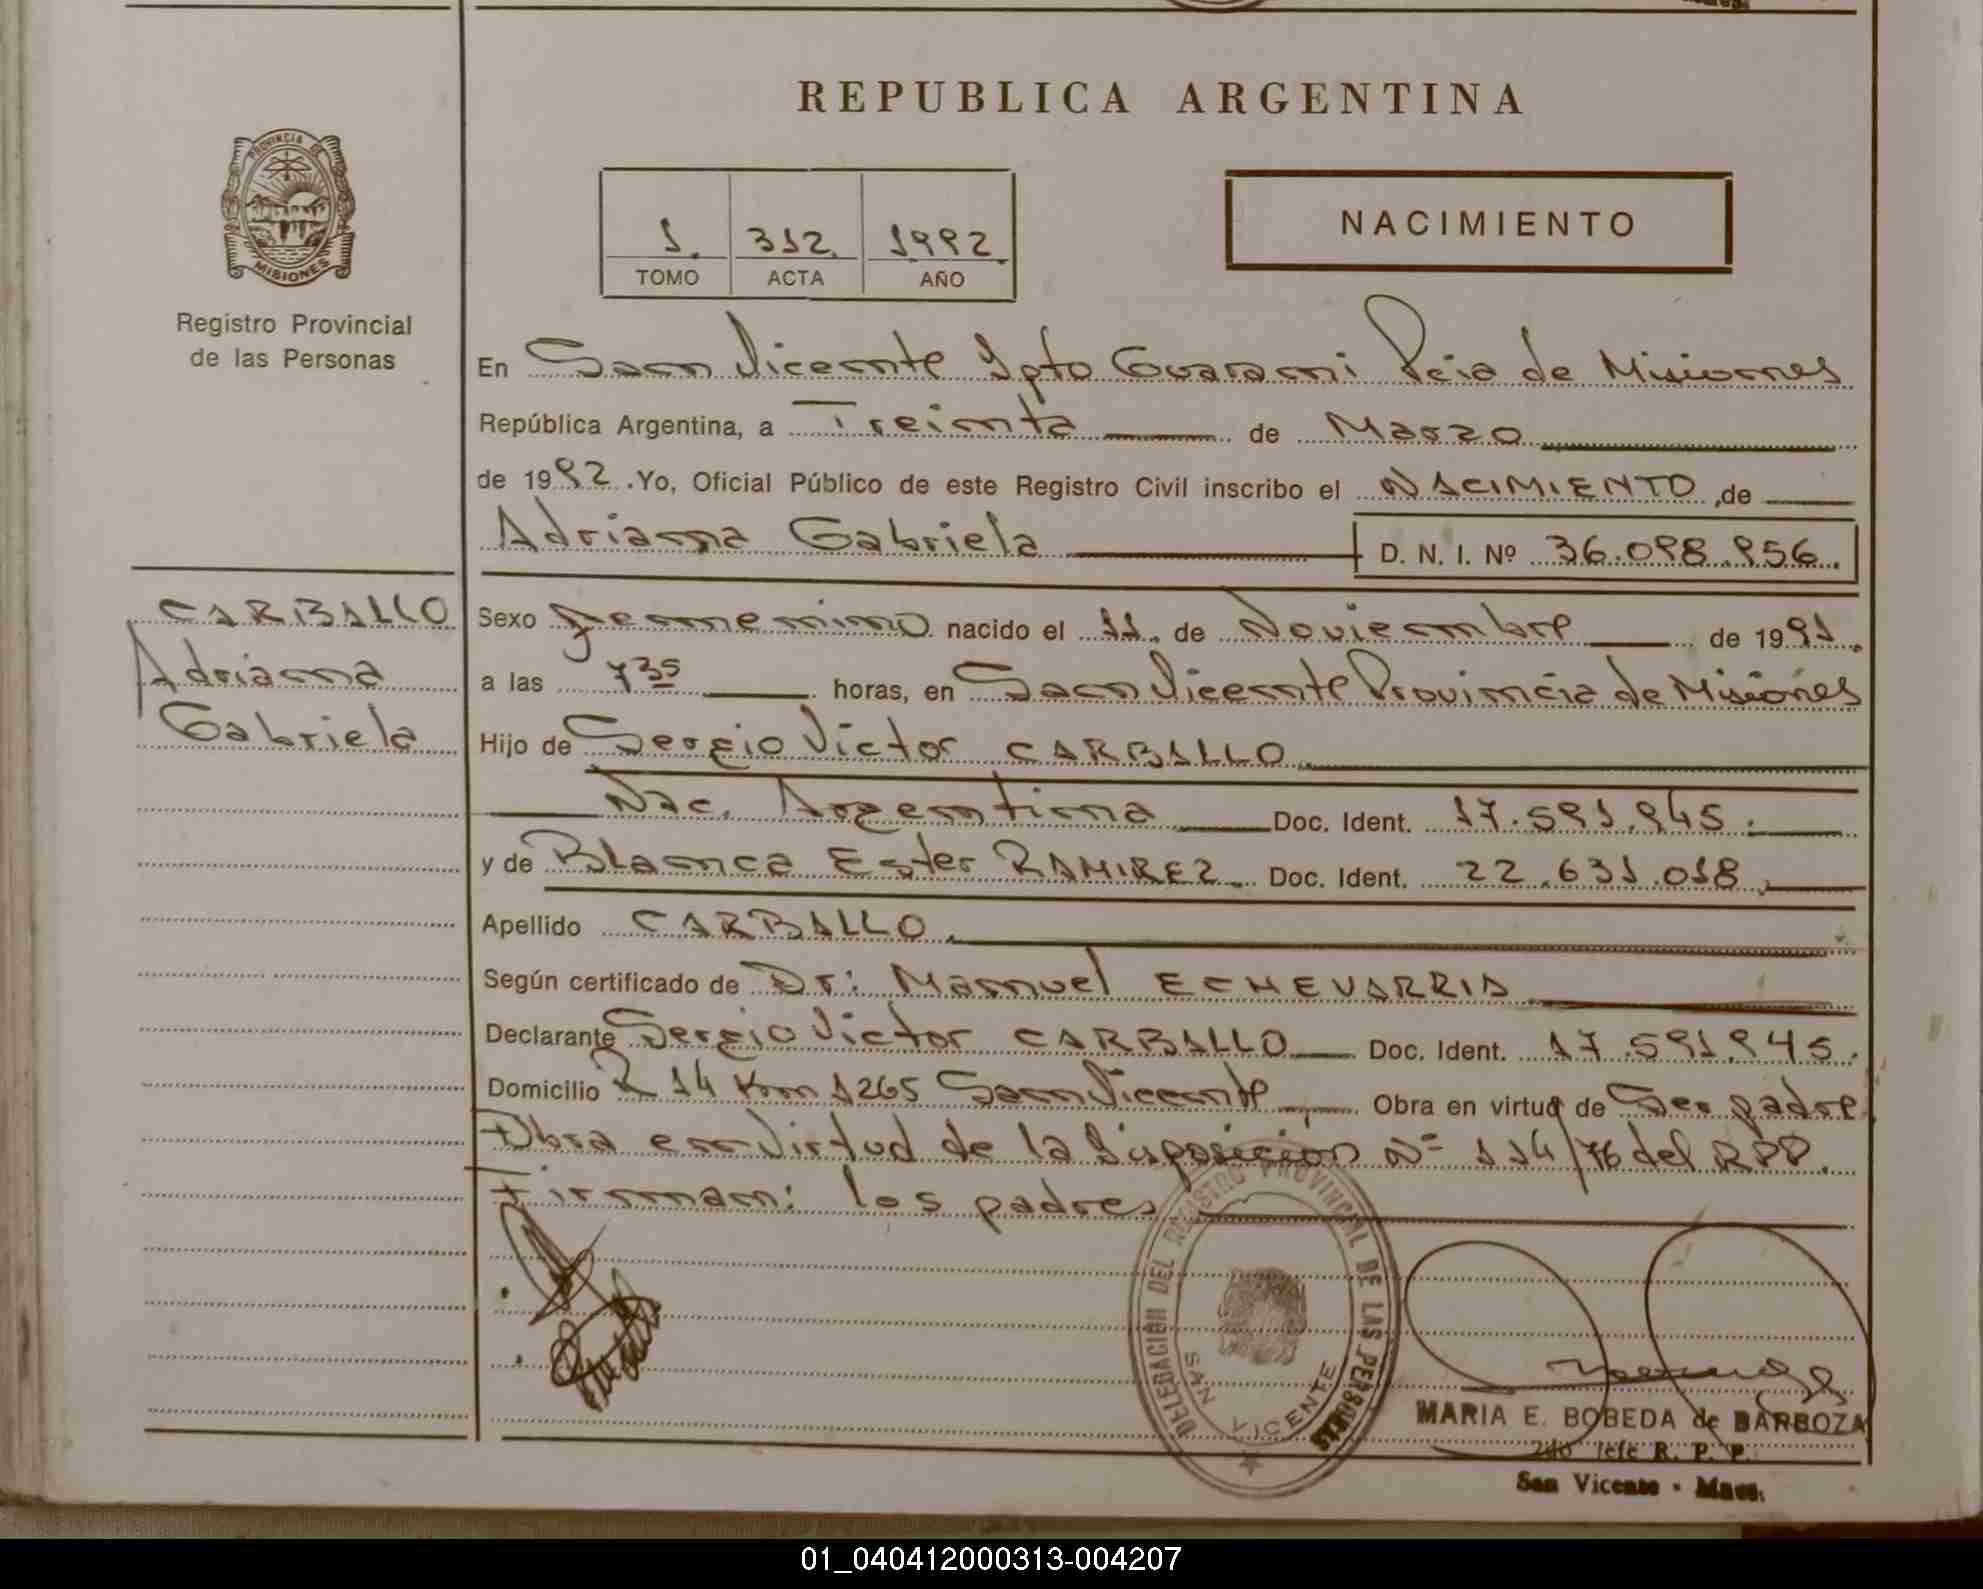 REPUBLICA ARGENTINA
PROVINCIA DE
MISIONES
Registro Provincial
de las Personas
1. 312. 1992.
TOMO ACTA AÑO
NACIMIENTO
En San Vicente Dpto Guarani Pcia de Misiones
República Argentina, a Treinta de Marzo
de 1992. Yo, Oficial Público de este Registro Civil inscribo el NACIMIENTO, de
Adriana Gabriela D. N. I. Nº 36.098.956.
CARBALLO
Adriana
Gabriela
Sexo femenino nacido el 11. de Noviembre de 1991.
a las 7 35 horas, en San Vicente Provincia de Misiones
Hijo de Sergio Victor CARBALLO
Nac. Argentina Doc. Ident. 17.591.945.
y de Blanca Ester RAMIREZ Doc. Ident. 22.631.018
Apellido CARBALLO.
Según certificado de Dr: Manuel ECHEVARRIA
Declarante Sergio Victor CARBALLO Doc. Ident. 17.591.945.
Domicilio R 14 Km 1265 San Vicente Obra en virtud de Ser padre
Obra en virtud de la Disposición Nº 114/76 del RPP.
Firman: los padres
DELEGACION DEL REGISTRO PROVINCIAL DE LAS PERSONAS
SAN VICENTE
MARIA E. BOBEDA de BARBOZA
2do Jefe R. P. P.
San Vicente - Mnes.
01_040412000313-004207